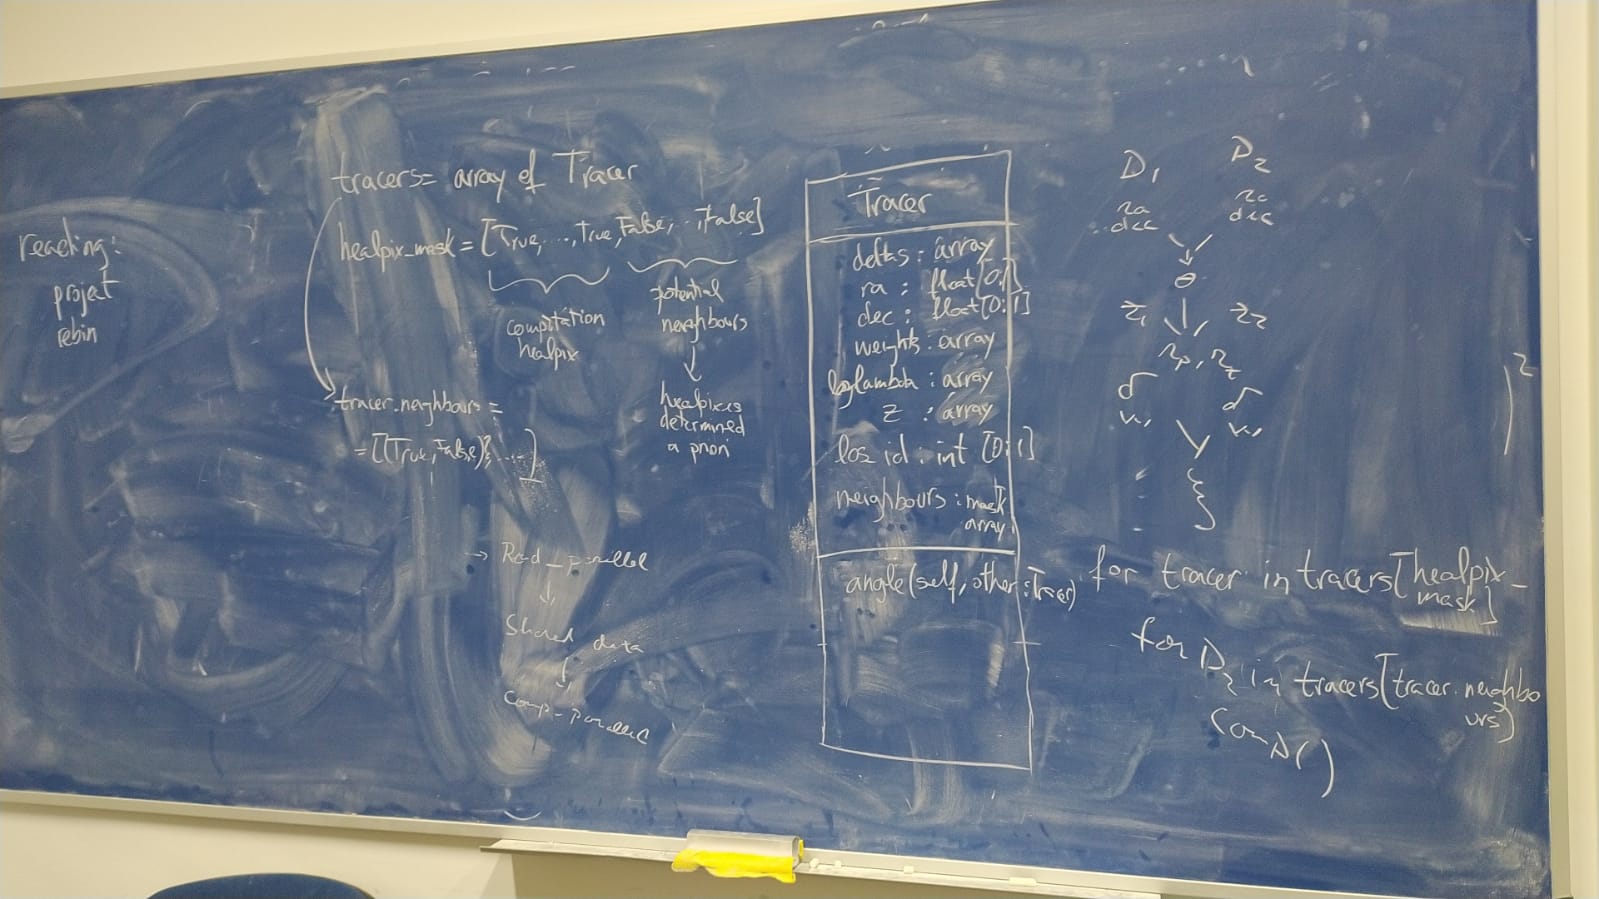 reading:
project
rebin
tracers= array of Tracer
healpix_mask = [True, ..., True, False, .., False]
computation
healpix
potential
neighbours
healpixes
determined
a priori
tracer.neighbours =
= [(True, False), ....]
→ Read_parallel
Shared data
comp-parallel
Tracer
deltas : array
ra : float[0:1]
dec : float[0:1]
weights : array
loglambda : array
z : array
los id : int [0:1]
neighbours : mask
array
angle(self, other : Tracer)
D1 D2
ra ra
dec dec
θ
z1 z2
rp, rz
δ δ
w1 w1
2
for tracer in tracers[healpix_
mask]
for D2 in tracers[tracer.neighbo
urs]
comp()